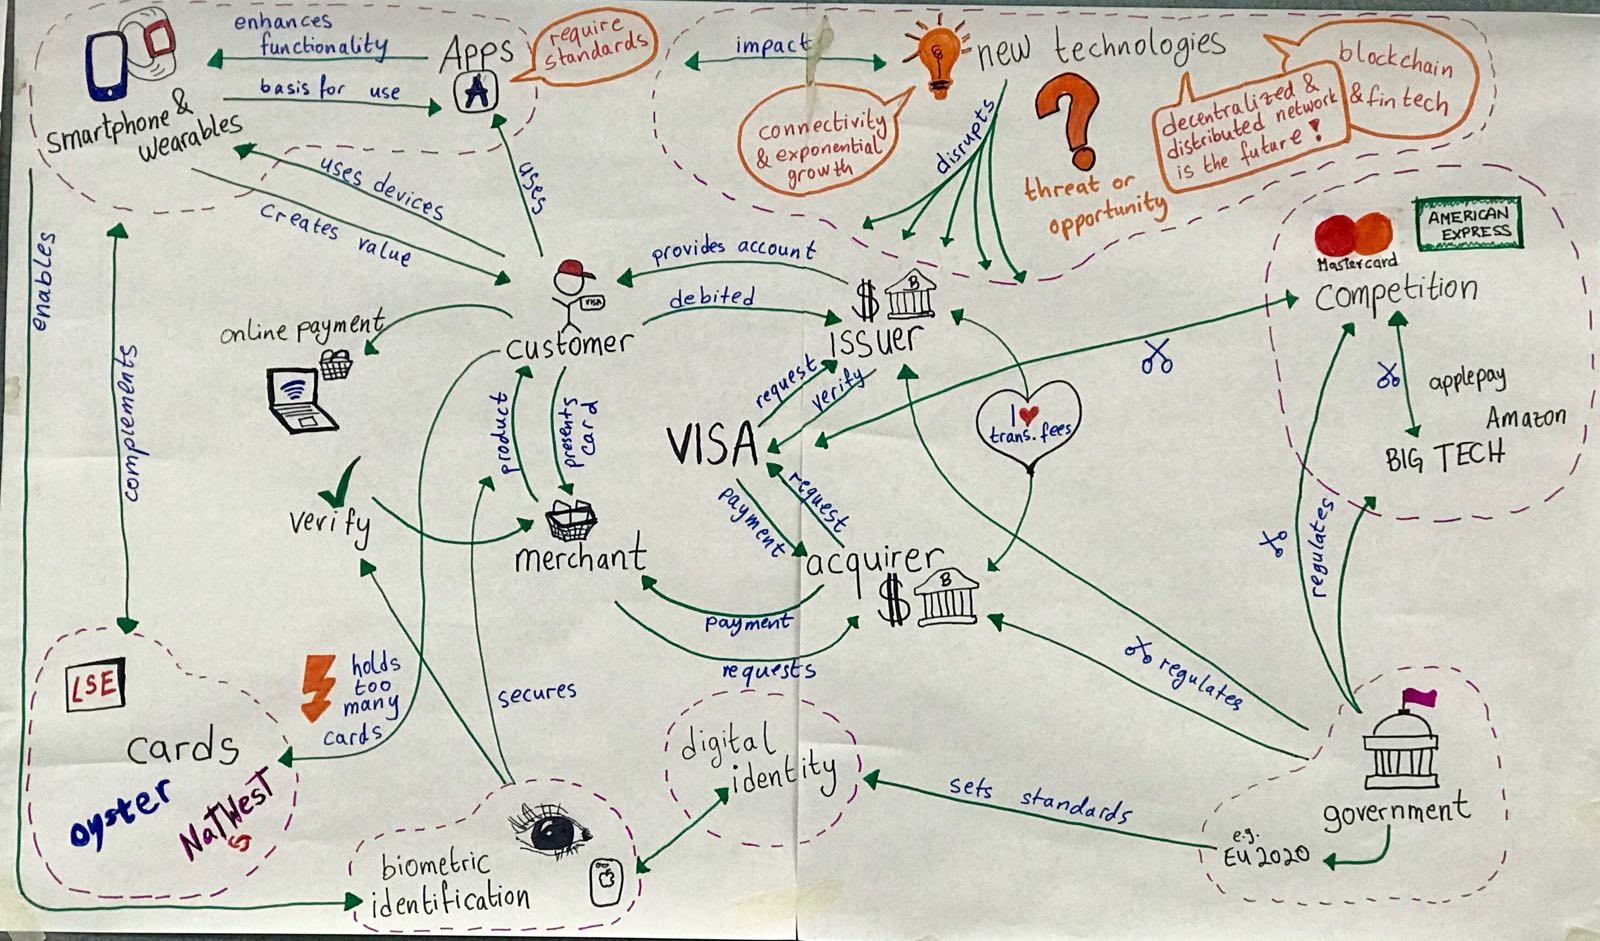 enhances
functionality
Apps
A
basis for use
require
standards
smartphone &
wearables
impact
new technologies
blockchain
& fintech
connectivity
& exponential
growth
decentralized &
distributed network
is the future!
disrupts
?
threat or
opportunity
uses devices
creates value
uses
enables
complements
provides account
debited
VISA
customer
online payment
$
B
issuer
request
verify
VISA
I ♥
trans. fees
Mastercard
AMERICAN
EXPRESS
competition
applepay
Amazon
BIG TECH
product
presents
card
verify
merchant
payment
request
acquirer
$
B
payment
requests
regulates
regulates
LSE
cards
oyster
NatWest
S
holds
too
many
cards
secures
digital
identity
biometric
identification
sets standards
government
e.g.
EU 2020